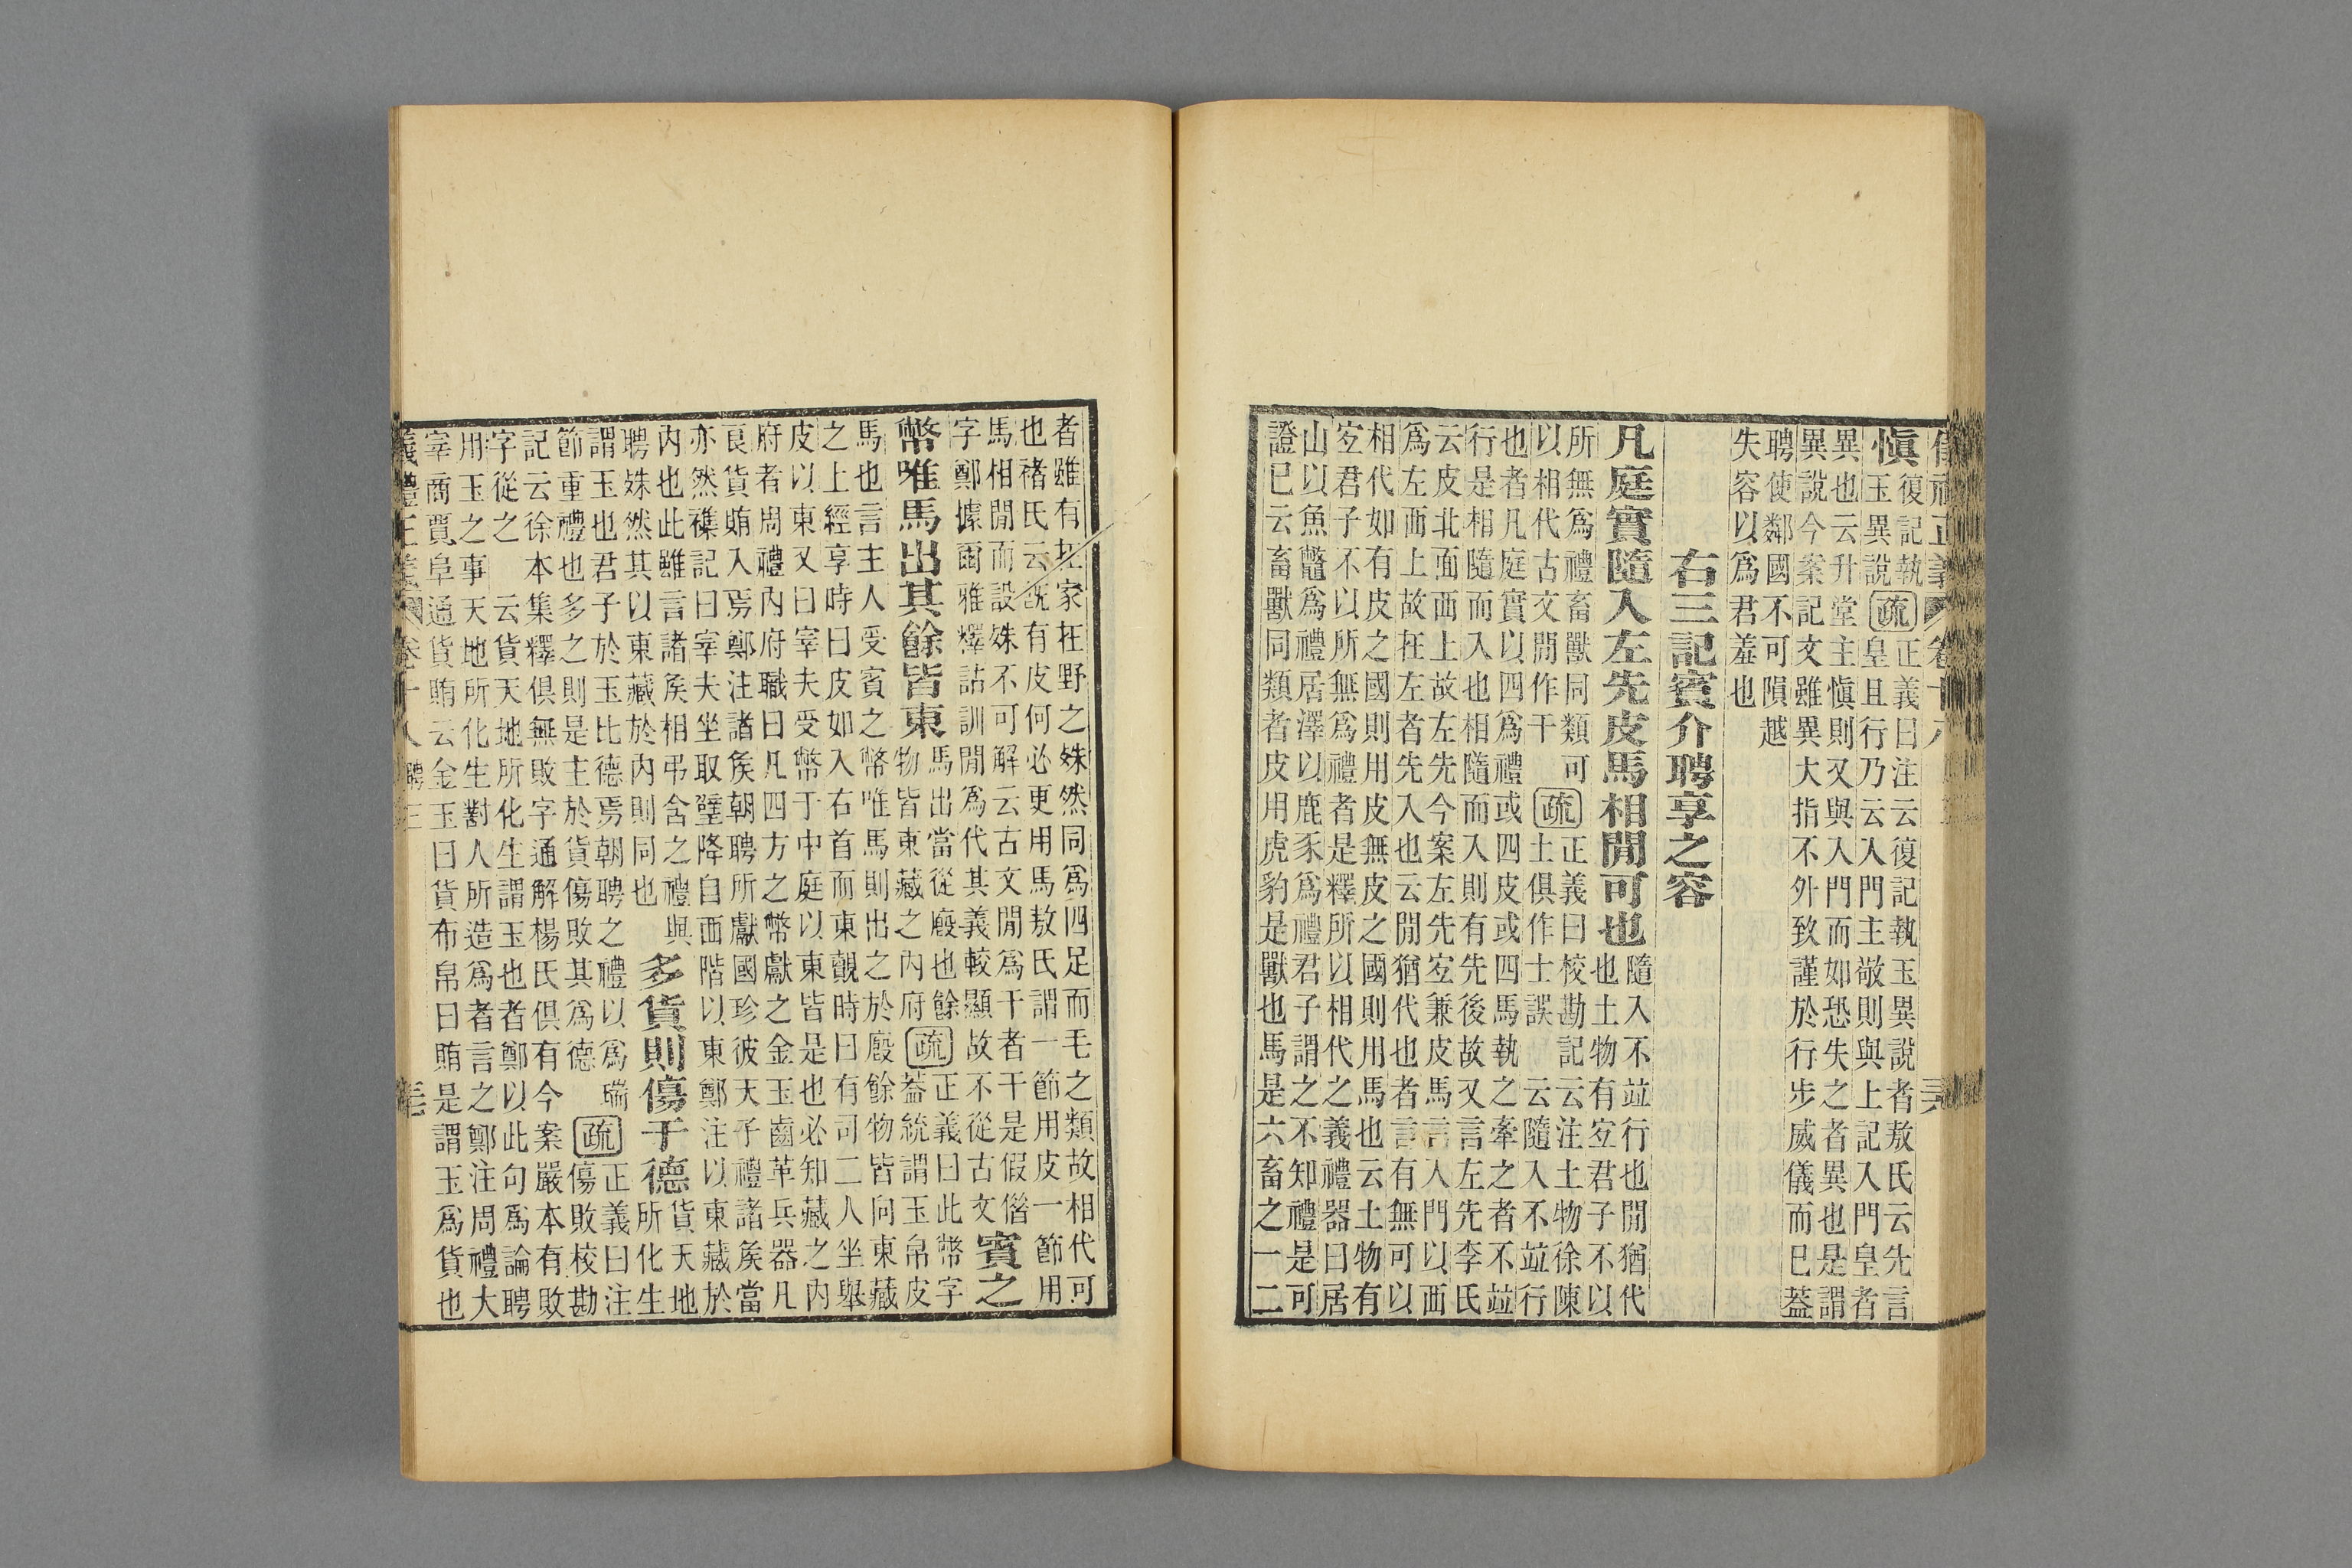 愼
復記執
玉異說
疏
正義曰注云復記執玉異說者敖氏云先言
皇且行乃云入門主敬則與上記入門皇者
異也云升堂主愼則又與入門而如恐失之者異也是謂
異說今案記文雖異大指不外致謹於行步威儀而已蓋
聘使鄰國不可隕越
失容以爲君羞也
右三記賓介聘享之容
凡庭實隨入左先皮馬相閒可也
隨入不竝行也閒猶代
也土物有宐君子不以
所無爲禮畜獸同類可
以相代古文閒作干
疏
正義曰校勘記云注土物徐陳
土俱作士誤 云隨入不竝行
也者凡庭實以四爲禮或四皮或四馬執之牽之者不竝
行是相隨而入也相隨而入則有先後故又言左先李氏
云皮北面西上故左先今案左先宐兼皮馬言入門以西
爲左西上故在左者先入也云閒猶代也者言有無可以
相代如有皮之國則用皮無皮之國則用馬也云土物有
宐君子不以所無爲禮者是釋所以相代之義禮器曰居
山以魚鼈爲禮居澤以鹿豕爲禮君子謂之不知禮是可
證已云畜獸同類者皮用虎豹是獸也馬是六畜之一二
者雖有在家在野之殊然同爲四足而毛之類故相代可
也褚氏云旣有皮何必更用馬敖氏謂一節用皮一節用
馬相閒而設殊不可解云古文閒爲干者干是假偕
字鄭據爾雅釋詁訓閒爲代其義較顯故不從古文
賓之
幣唯馬出其餘皆東
馬出當從廄也餘
物皆東藏之內府
疏
正義曰此幣字
蓋統謂玉帛皮
馬也言主人受賓之幣唯馬則出之於廄餘物皆向東藏
之上經享時曰皮如入右首而東覿時曰有司二人坐舉
皮以東又曰宰夫受幣于中庭以東皆是也必知藏之內
府者周禮內府職曰凡四方之幣獻之金玉齒革兵器凡
良貨賄入焉鄭注諸矦朝聘所獻國珍彼天子禮諸矦當
亦然襍記曰宰夫坐取璧降自西階以東鄭注以東藏於
內也此雖言諸矦相弔含之禮與
聘殊然其以東藏於內則同也
多貨則傷于德
貨天地
所化生
謂玉也君子於玉比德焉朝聘之禮以爲瑞
節重禮也多之則是主於貨傷敗其爲德
疏
正義曰注
傷敗校勘
記云徐本集釋俱無敗字通解楊氏俱有今案嚴本有敗
字從之 云貨天地所化生謂玉也者鄭以此句爲論聘
用玉之事天地所化生對人所造爲者言之鄭注周禮大
宰商賈阜通貨賄云金玉曰貨布帛曰賄是謂玉爲貨也